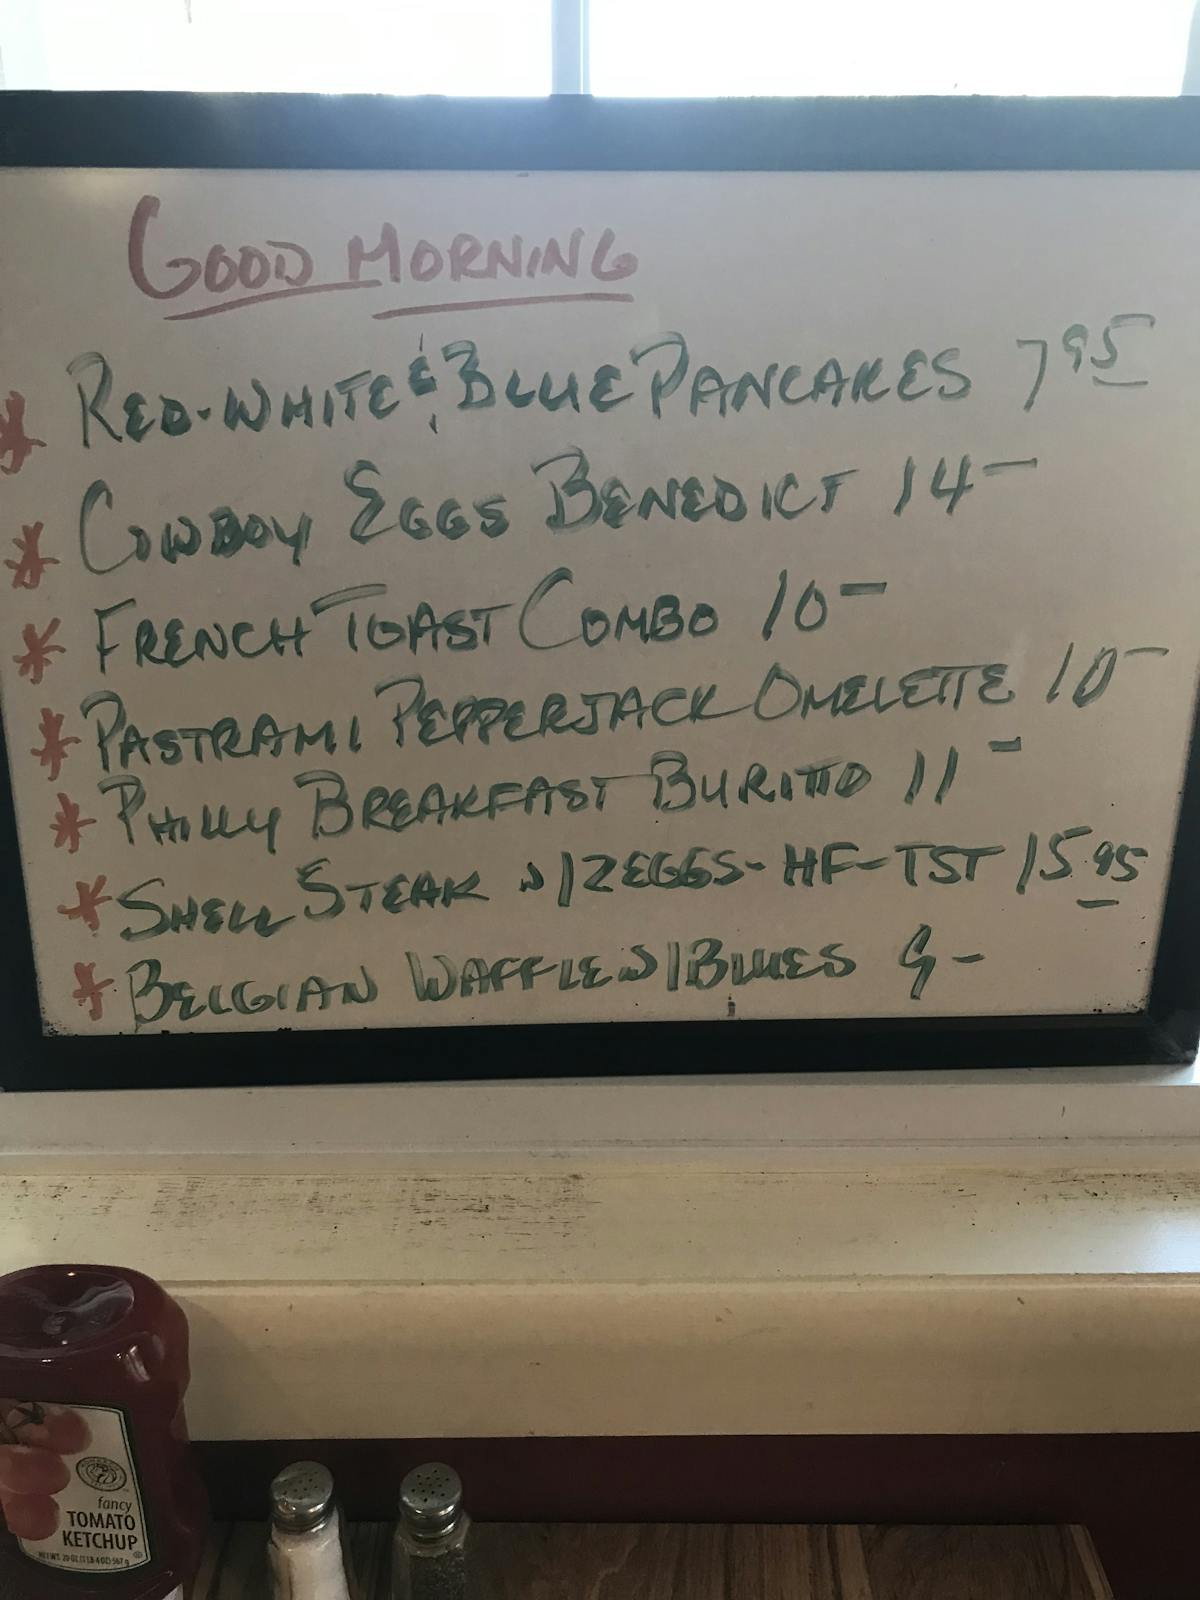 GOOD MORNING
* RED-WHITE & BLUE PANCAKES 7 95
* COWBOY EGGS BENEDICT 14 -
* FRENCH TOAST COMBO 10 -
* PASTRAMI PEPPERJACK OMELETTE 10 -
* PHILLY BREAKFAST BURITTO 11 -
* SHELL STEAK W/2EGGS-HF-TST 15.95
* BELGIAN WAFFLE W/BLUES 9 -
fancy
TOMATO
KETCHUP
NET WT. 20 OZ (1 LB 4 OZ) 567 g